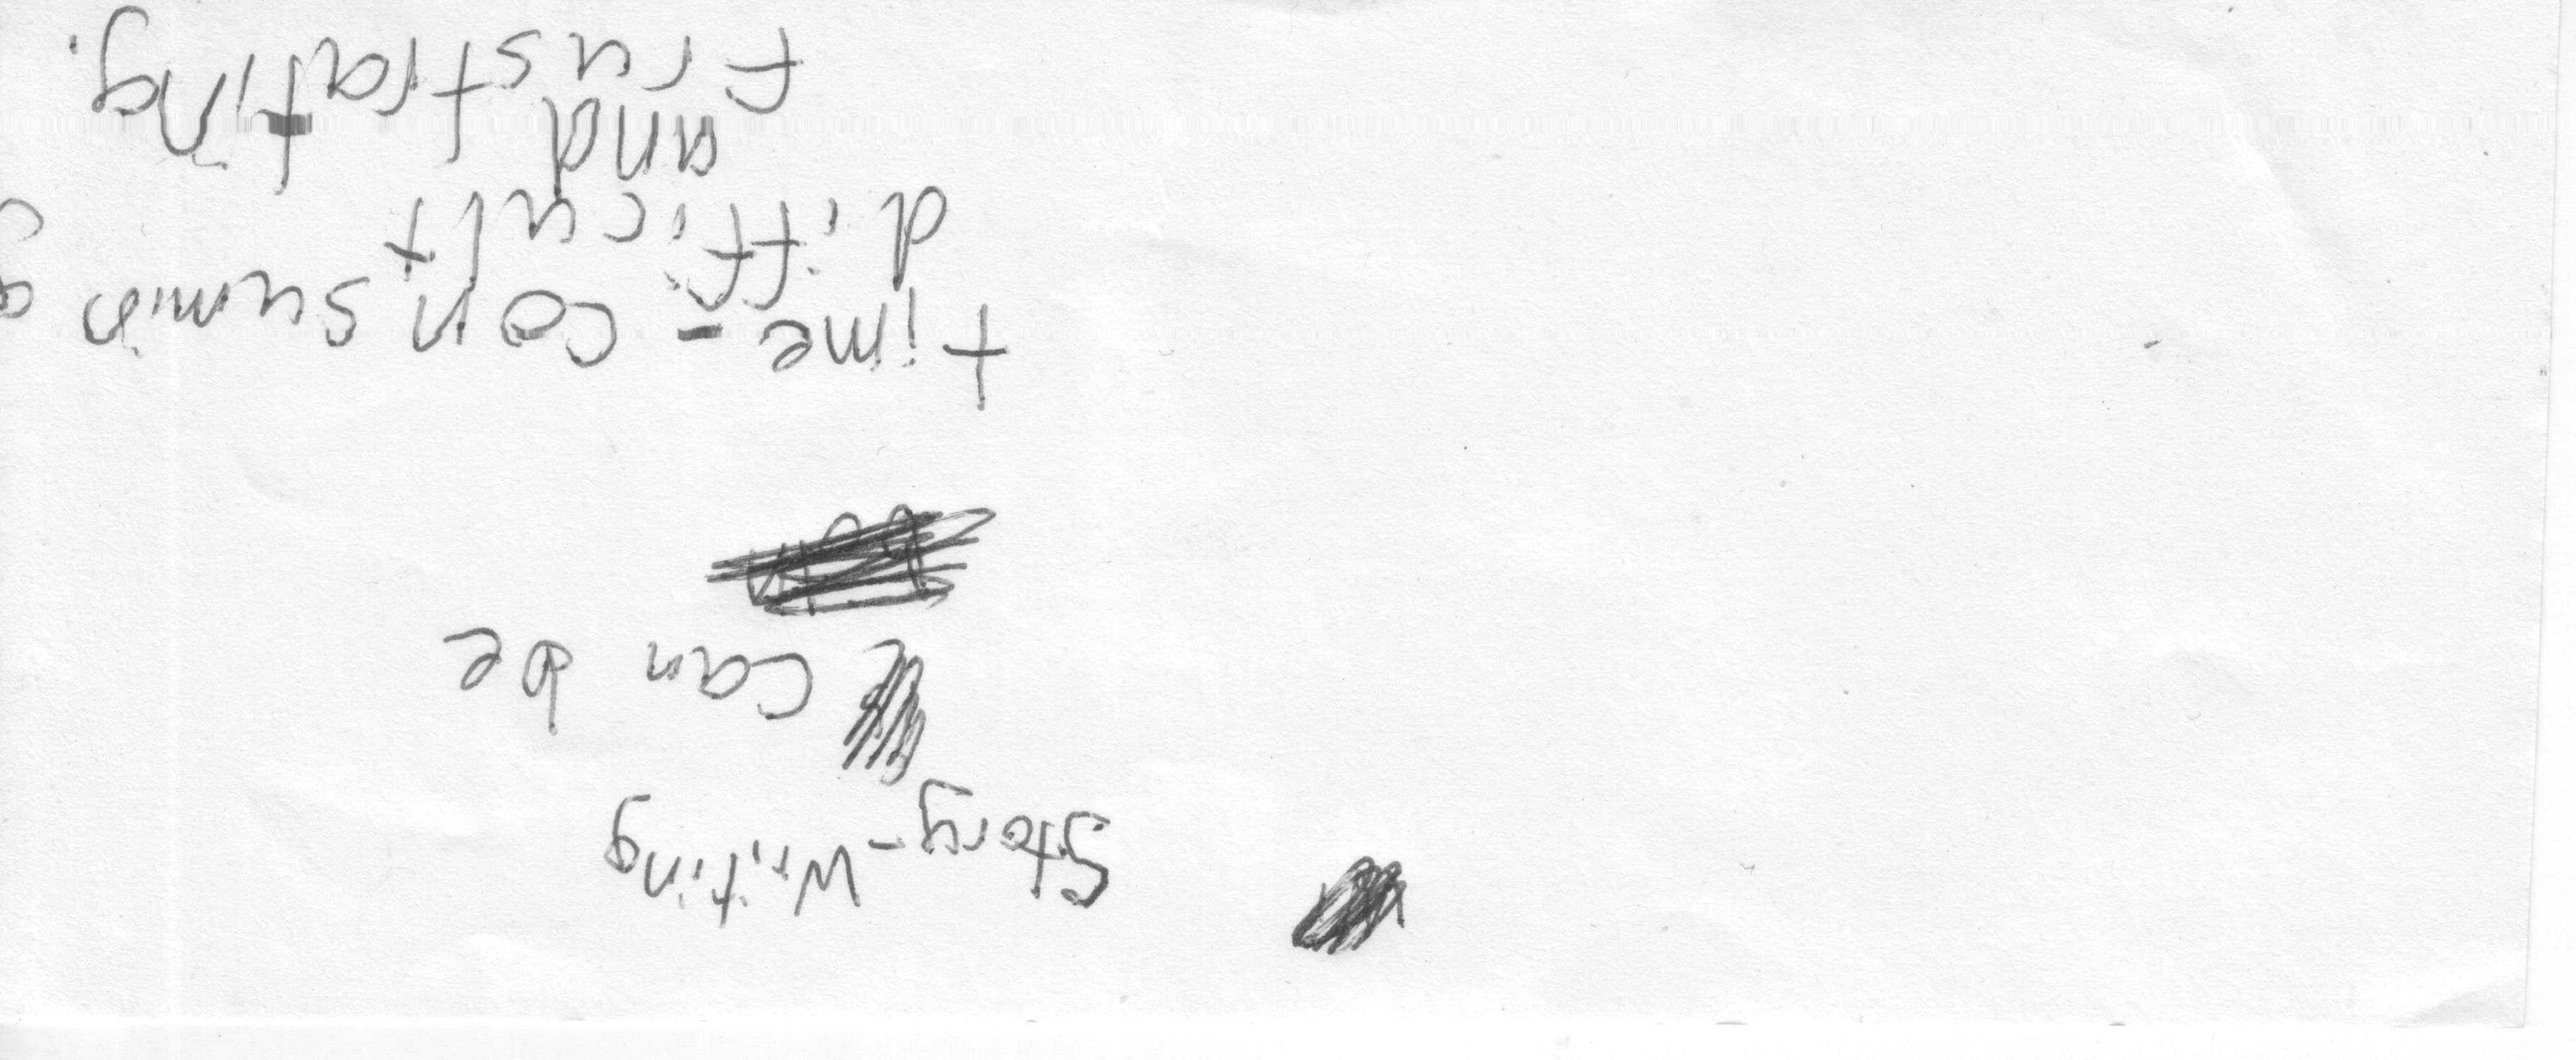 Story-Writing
can be
time-consuming
difficult
and
frustrating.